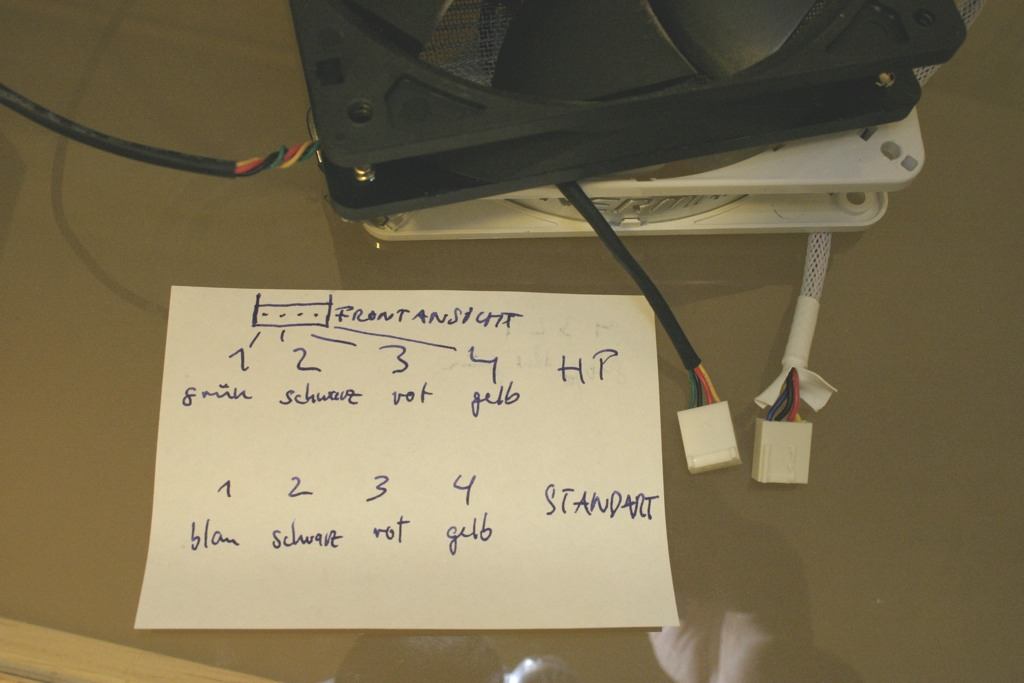 FRONTANSICHT
1 2 3 4 HP
grün schwarz rot gelb
1 2 3 4 STANDART
blau schwarz rot gelb